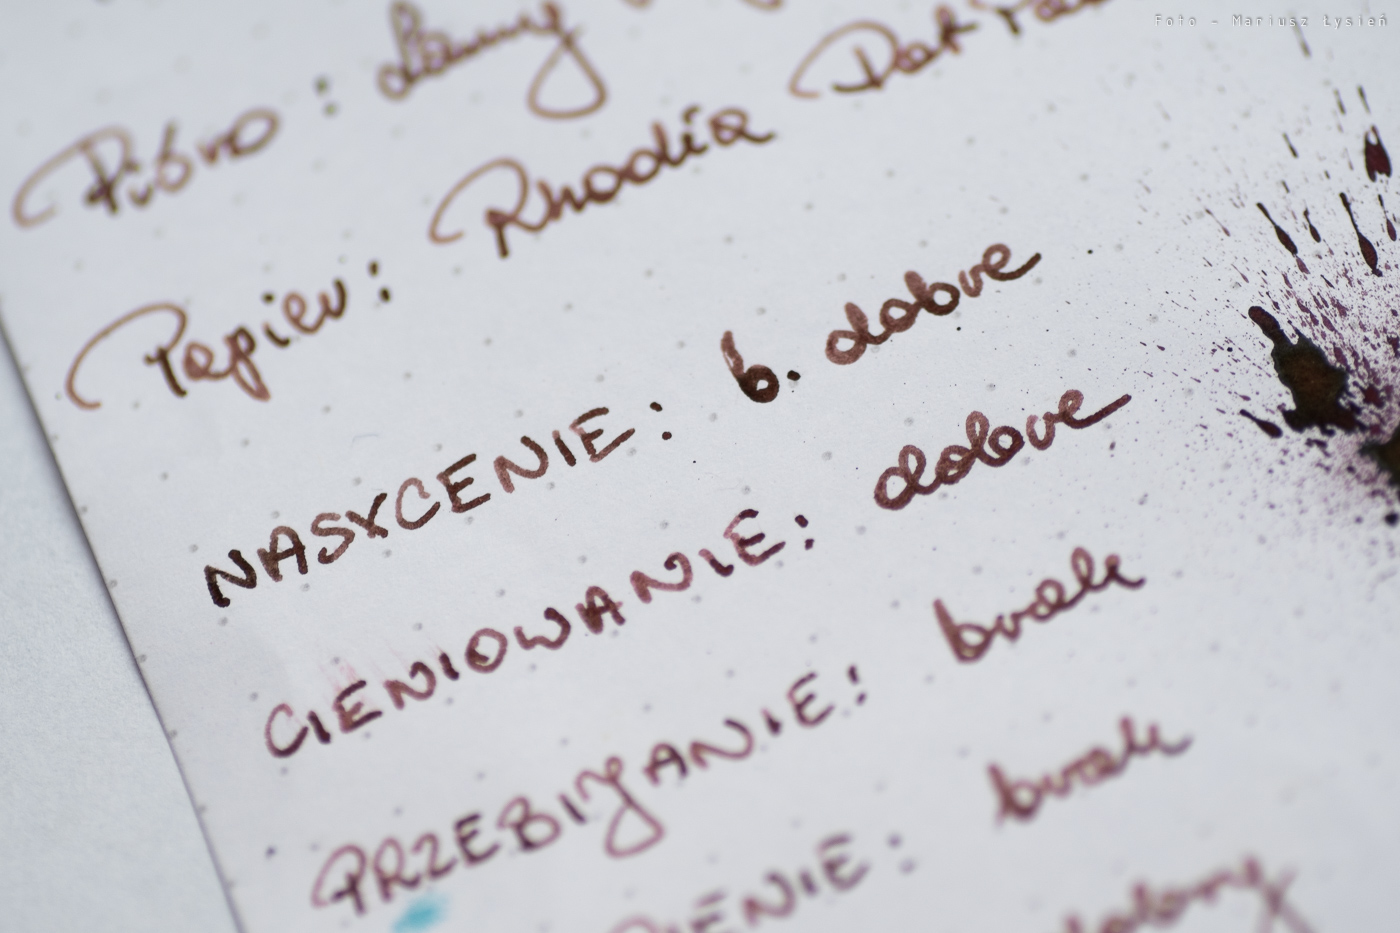 Foto - Mariusz Łysień
Pióro: Lamy
Papier: Rhodia Dot Pad
NASYCENIE: b. dobre
CIENIOWANIE: dobre
PRZEBIJANIE: brak
brak